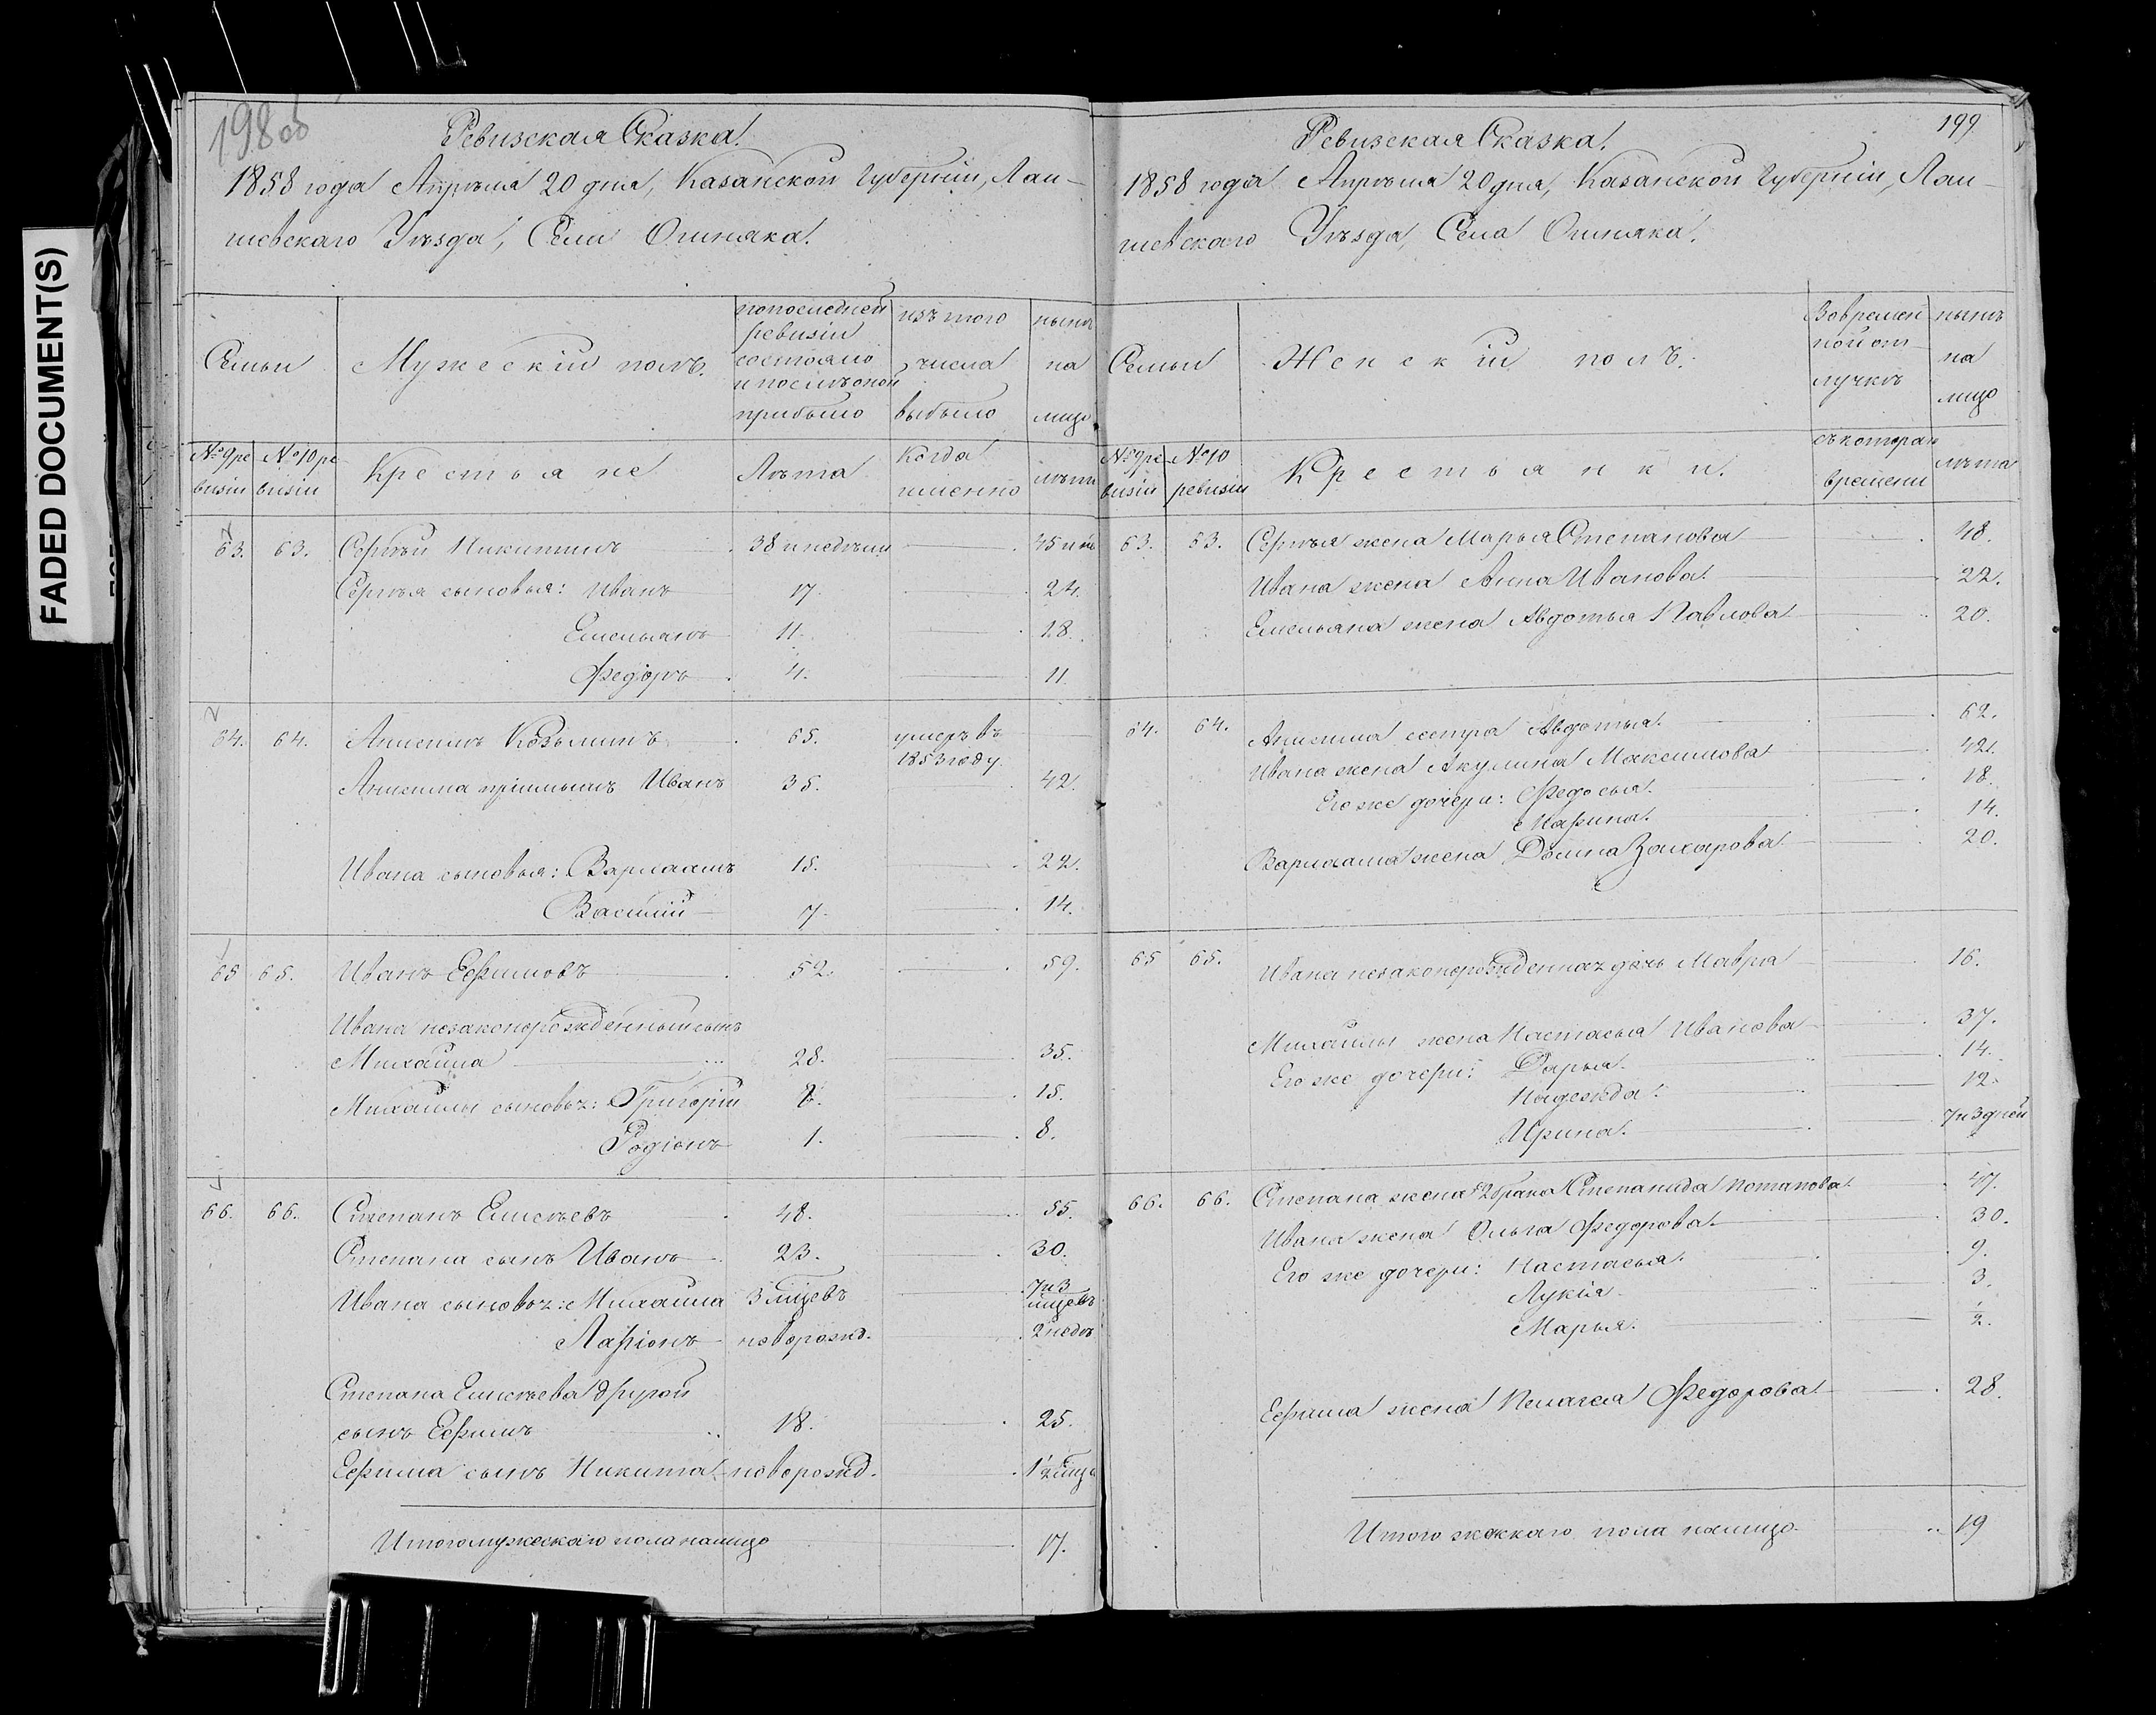 FADED DOCUMENT(S)
198об
Ревизская Сказка.
1858 года Апрѣля 20 дня, Казанской Губерніи, Лаи-
шевскаго Уѣзда, Села Ошняка.
Семьи
Мужескій полъ.
по последней ревизіи состояло и после оной прибыло
изъ того числа выбыло
нынѣ на лицо
№ 9 ревизіи
№ 10 ревизіи
Крестьяне
Лѣта
когда именно
лѣта
63. 63. Сергѣй Никитинъ 38 и недѣли 45 и
Сергѣя сыновья: Иванъ 17. 24.
Емельянъ 11. 18.
Федоръ 4. 11.
64. 64. Анисимъ Козьминъ 65. умеръ въ
1853 году.
Анисима пріимышъ Иванъ 35. 42.
Ивана сыновья: Варлаамъ 15. 22.
Василий 7. 14.
65 65. Иванъ Ефимовъ 52. 59.
Ивана незаконорожденный сынъ
Михайла 28. 35.
Михайлы сыновья: Григорій 8. 15.
Родіонъ 1. 8.
66. 66. Степанъ Елисѣевъ 48. 55.
Степана сынъ Иванъ 23. 30.
Ивана сыновья: Михайла 3 мцевъ 7 и 3
мцевъ
Ларіонъ новорожд. 2 недѣ
Степана Елисѣева другой
сынъ Ефимъ 18. 25.
Ефима сынъ Никита новорожд. 1/2 мца
Итого мужескаго пола налицо 17.
199
Ревизская Сказка.
1858 года Апрѣля 20 дня, Казанской Губерніи, Лаи-
шевскаго Уѣзда, Села Ошняка.
Семьи
Женскій полъ.
Во временной отлучкѣ
нынѣ на лицо
№ 9 ревизіи
№ 10 ревизіи
Крестьянки.
съ котораго времени
лѣта
63. 63. Сергѣя жена Марья Степанова 48.
Ивана жена Анна Иванова. 22.
Емельяна жена Авдотья Павлова 20.
64. 64. Анисима сестра Авдотья. 62.
Ивана жена Акулина Максимова 42.
Его же дочери: Федосья. 18.
Марина. 14.
Варлаама жена Домна Захарова 20.
65 65. Ивана незаконорожденная дочь Мавра 16.
Михайлы жена Настасья Иванова 37.
Его же дочери: Дарья. 14.
Надежда. 12.
Ирина. 7 и 3 дней
66. 66. Степана жена 2 брака Степанида Потапова. 47.
Ивана жена Ольга Федорова. 30.
Его же дочери: Настасья. 9.
Лукія 3.
Марья. 1/2.
Ефима жена Пелагея Федорова 28.
Итого женскаго пола налицо 19